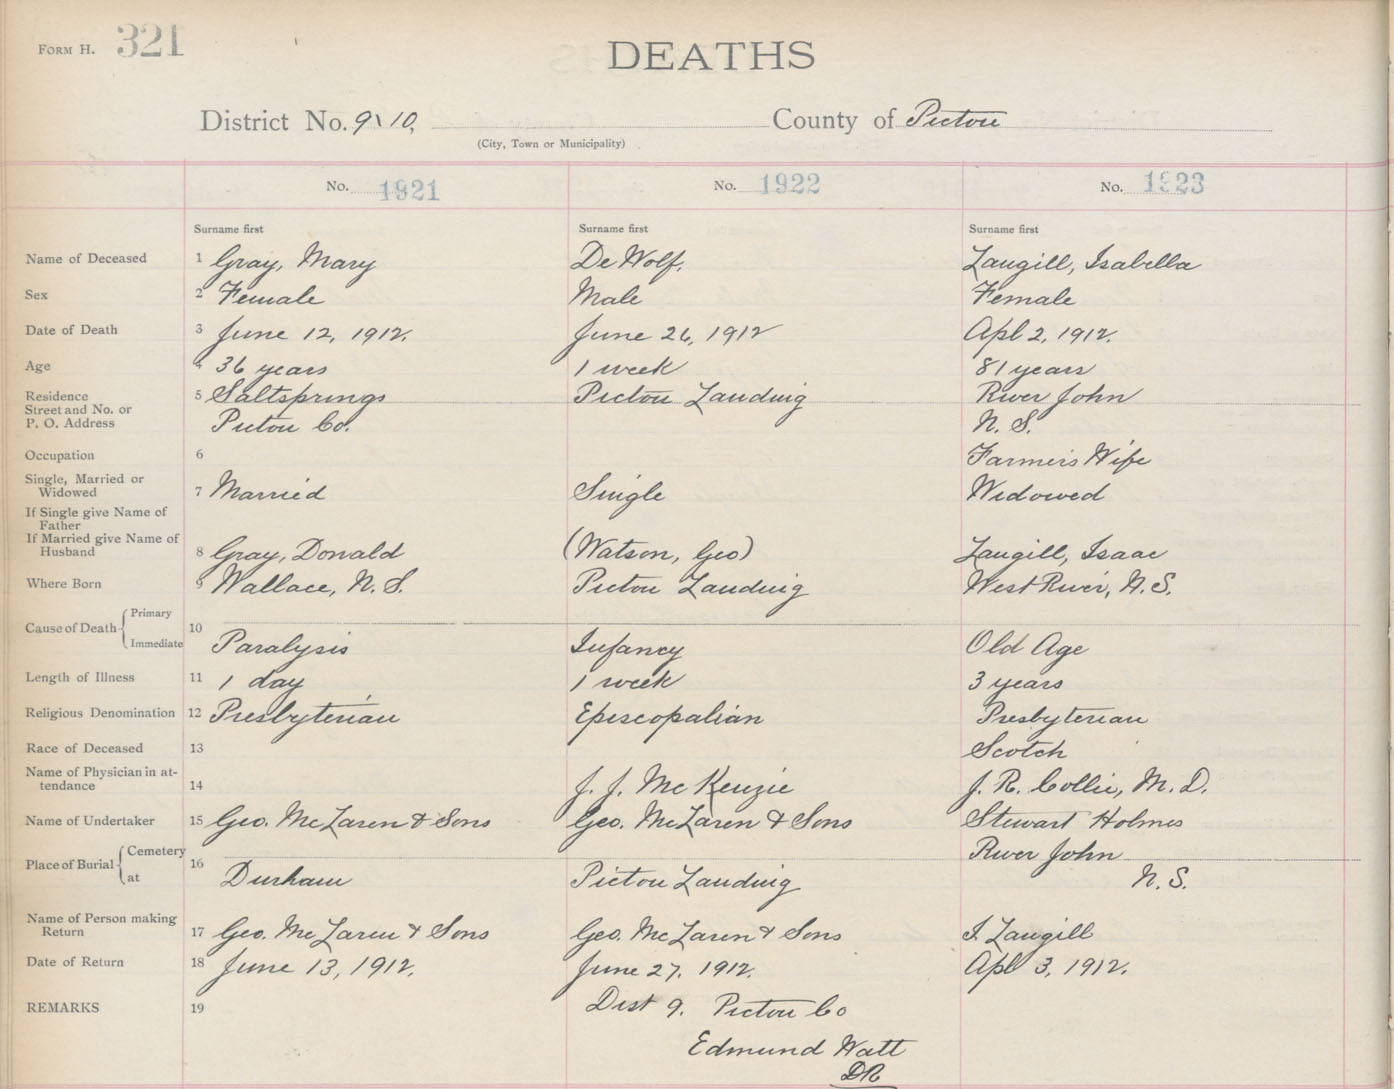 FORM H. 321
DEATHS
District No. 9 & 10, County of Pictou
(City, Town or Municipality)
No. 1921 No. 1922 No. 1923
Surname first Surname first Surname first
Name of Deceased 1 Gray, Mary De Wolf. Langill, Isabella
Sex 2 Female Male Female
Date of Death 3 June 12, 1912. June 26, 1912 Apl 2, 1912.
Age 4 36 years 1 week 81 years
Residence 5 Saltsprings Pictou Landing River John
Street and No. or
P. O. Address Pictou Co. N. S.
Occupation 6 Farmers Wife
Single, Married or
Widowed 7 Married Single Widowed
If Single give Name of
Father
If Married give Name of
Husband 8 Gray, Donald (Watson, Geo) Langill, Isaac
Where Born 9 Wallace, N. S. Pictou Landing West River, N. S.
Cause of Death { Primary
10
Immediate Paralysis Infancy Old Age
Length of Illness 11 1 day 1 week 3 years
Religious Denomination 12 Presbyterian Episcopalian Presbyterian
Race of Deceased 13 Scotch
Name of Physician in at-
tendance 14 J. J. McKenzie J. R. Collie, M. D.
Name of Undertaker 15 Geo. McLaren & Sons Geo. McLaren & Sons Stewart Holmes
Place of Burial { Cemetery River John
16
at Durham Pictou Landing N. S.
Name of Person making
Return 17 Geo. McLaren & Sons Geo. McLaren & Sons I. Langill
Date of Return 18 June 13, 1912. June 27, 1912. Apl 3, 1912.
REMARKS 19 Dist 9. Pictou Co
Edmund Watt
DR